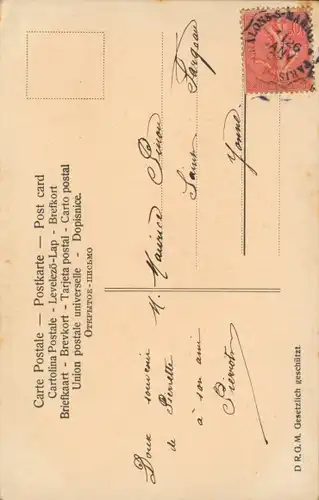 Carte Postale — Postkarte — Post card
Cartolina Postale - Levelező-Lap - Brefkort
Briefkaart - Brevkort - Tarjeta postal - Carto postal
Union postale universelle - Dopisnice.
Открыток-письмо
Doux souvenir
de Pierrette
à son ami
Pierrot
M. Maurice Simon
Saint Fargeau
Yonne
PARIS
D R.G.M. Gesetzlich geschützt.